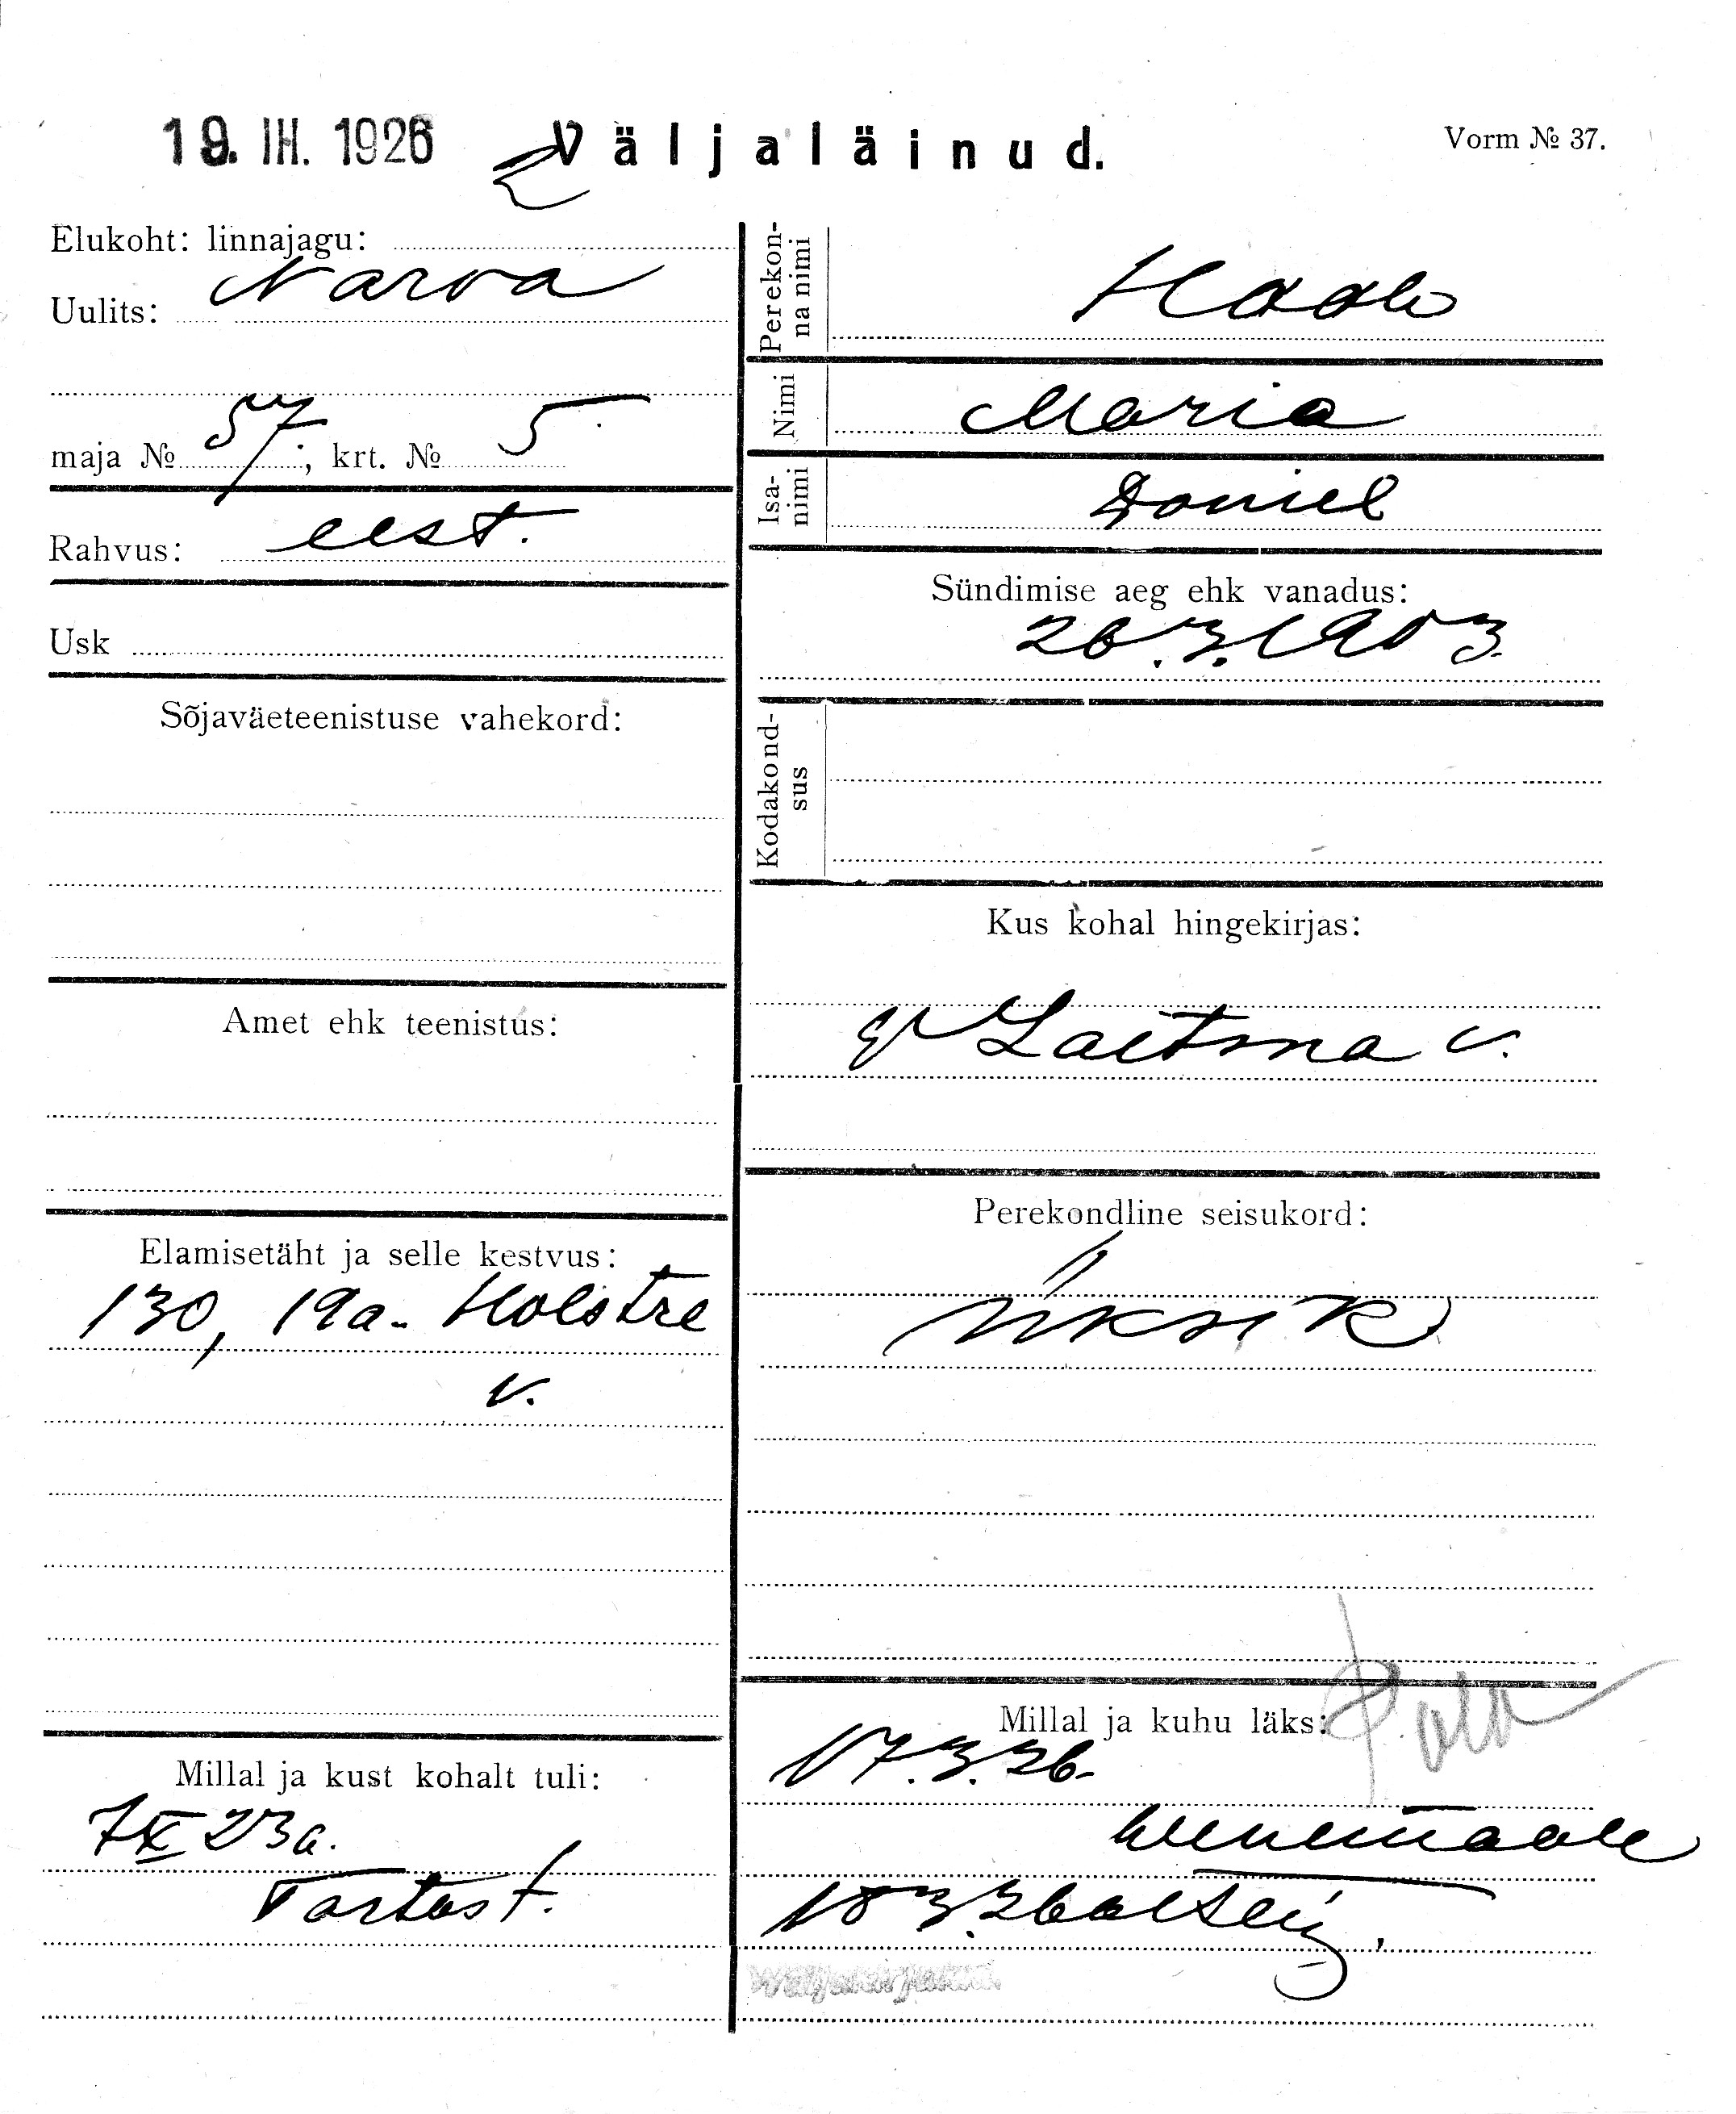 19. III. 1926 Väljaläinud. Vorm № 37.
Elukoht: linnajagu:
Uulits: Narva
maja № 57; krt. № 5
Rahvus: eest.
Usk
Sõjaväeteenistuse vahekord:
Amet ehk teenistus:
Elamisetäht ja selle kestvus:
130, 19a. Holstre
v.
Millal ja kust kohalt tuli:
7 IX 23 a.
Tartust.
Perekonna nimi
Nimi Maria
Isanimi Daniel
Sündimise aeg ehk vanadus:
26.3.1903.
Kodakondsus
Kus kohal hingekirjas:
Laitsna v.
Perekondline seisukord:
Üksik
Millal ja kuhu läks:
17.3.26.
Wenemaale
18 3.26